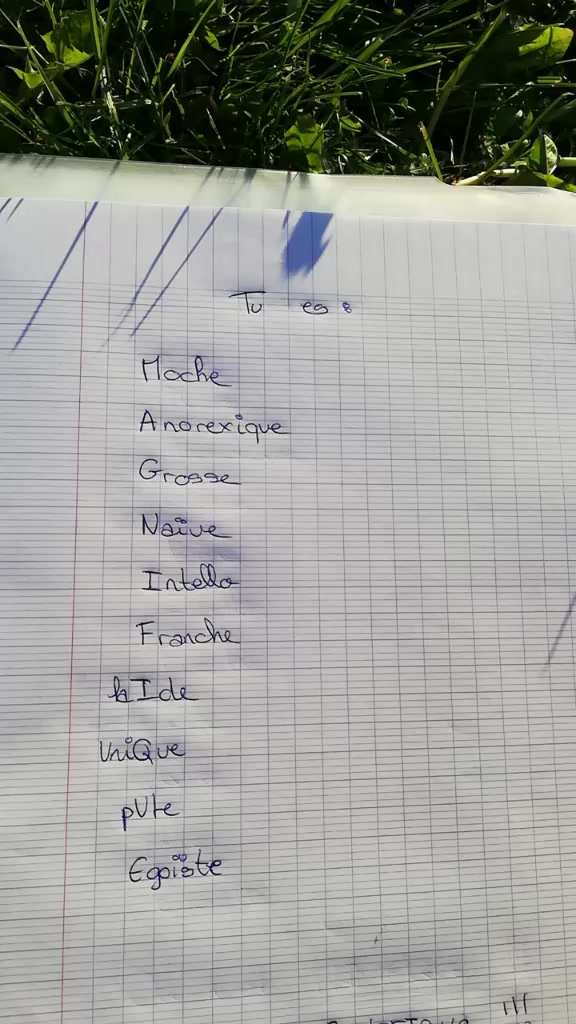 Tu es :
Moche
Anorexique
Grosse
Naïve
Intello
Franche
laIde
UniQue
pUte
Egoïste